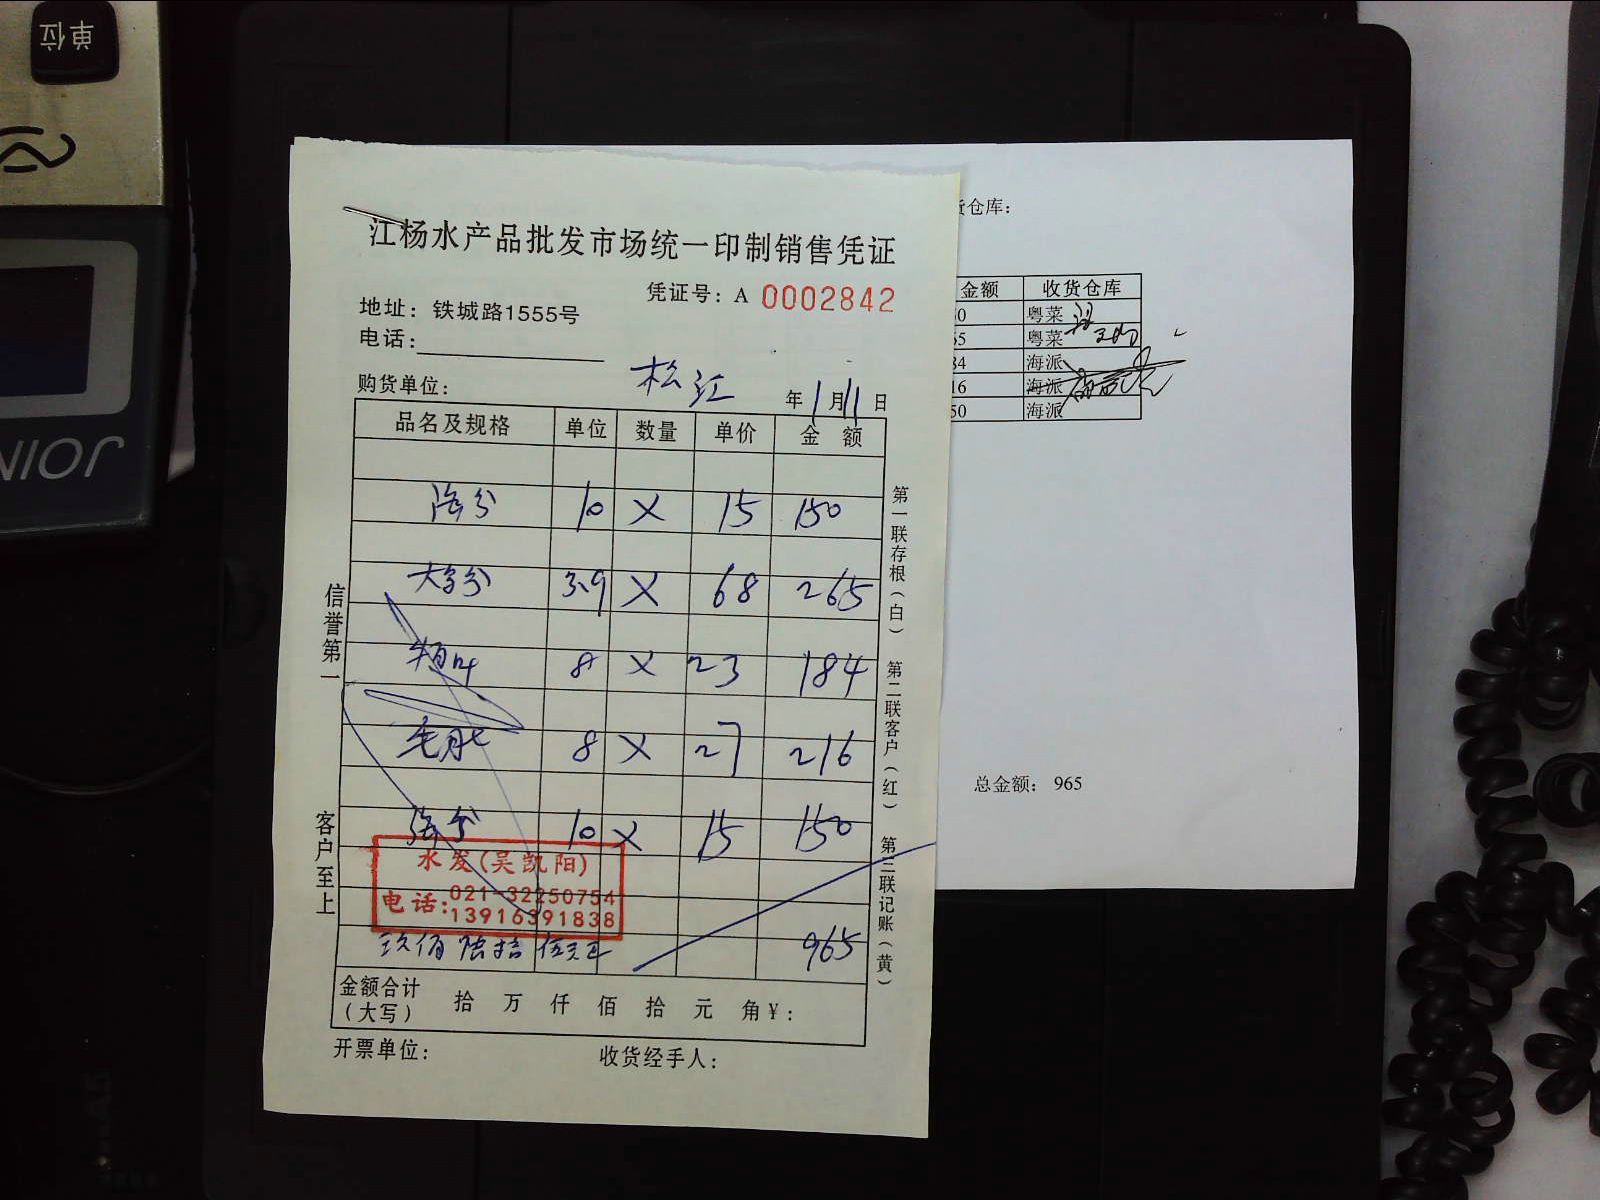 单位
JOINI
江杨水产品批发市场统一印制销售凭证
凭证号：A 0002842
地址：铁城路1555号
电话：
购货单位： 松江 年 1 月 11 日
品名及规格 单位 数量 单价 金 额
10 X 15 150
3.9 X 68 265
8 X 23 184
8 X 27 216
10 X 15 150
水发(吴凯阳)
电话：021-32250754
13916391838
玖佰陆拾伍元正 965
金额合计
（大写） 拾 万 仟 佰 拾 元 角 ¥：
开票单位： 收货经手人：
信誉第一
客户至上
第一联存根（白）
第二联客户（红）
第三联记账（黄）
货仓库：
金额 收货仓库
0 粤菜
65 粤菜
84 海派
16 海派
50 海派
总金额： 965